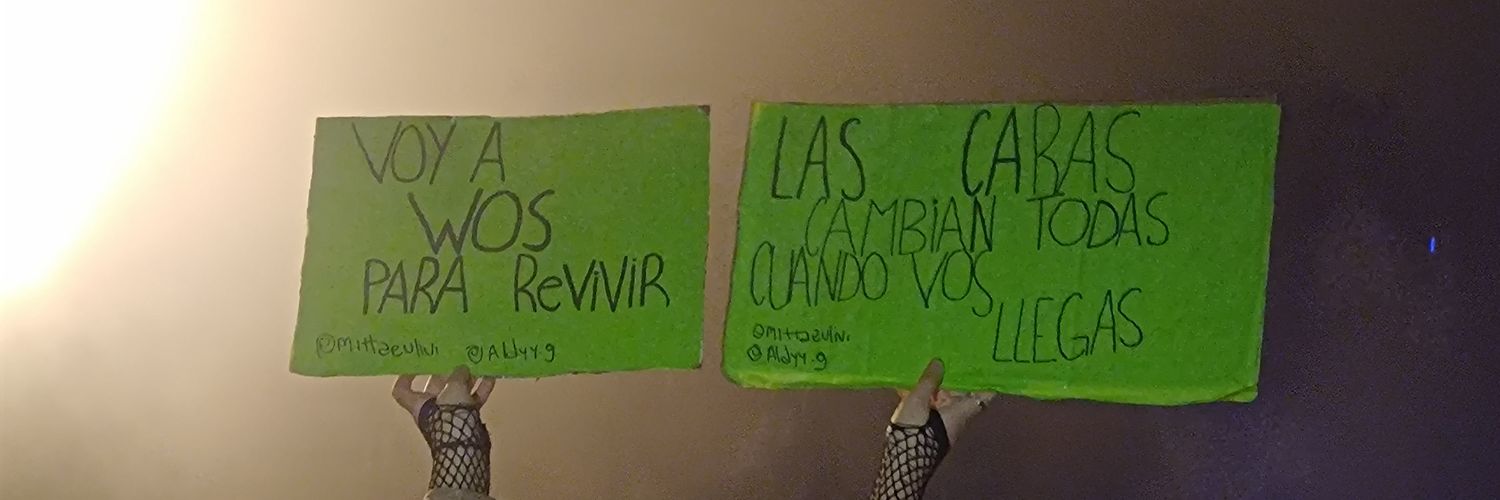 VOY A
WOS
PARA ReViViR
@mittaeulivi @Aldyy.g
LAS CARAS
CAMBiAN TODAS
CUANDO VOS
LLEGAS
@mittaeulivi
@Aldyy.g